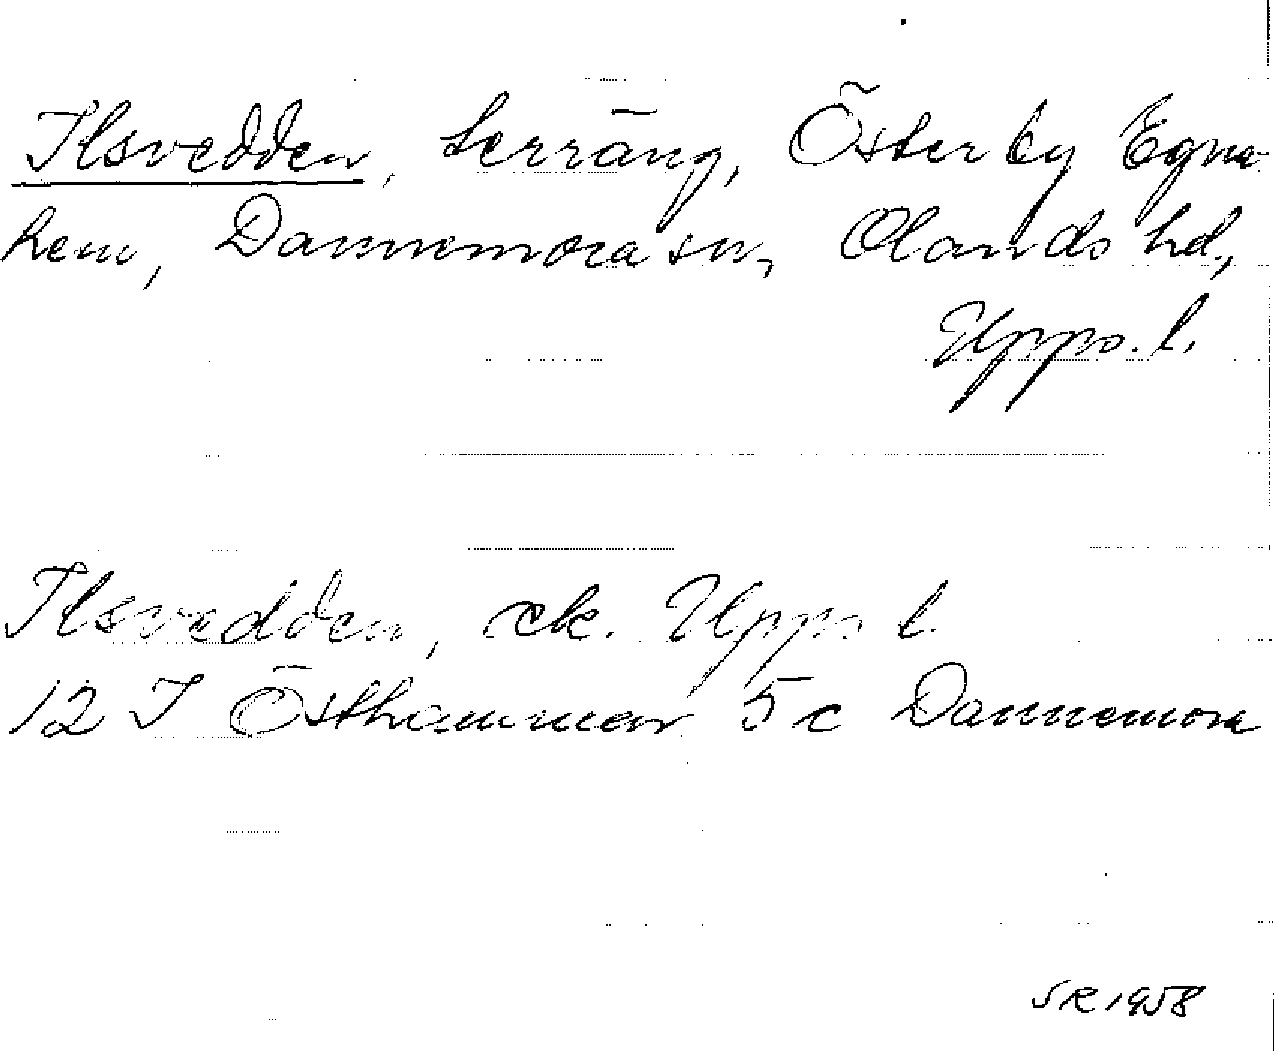 Ilsvedden, terräng, Österby Egna
hem, Dannemora sn, Olands hd,
Upps. l.
Ilsvedden, ek. Upps. l.
12 I Östhammar 5 c Dannemora
SR 1958